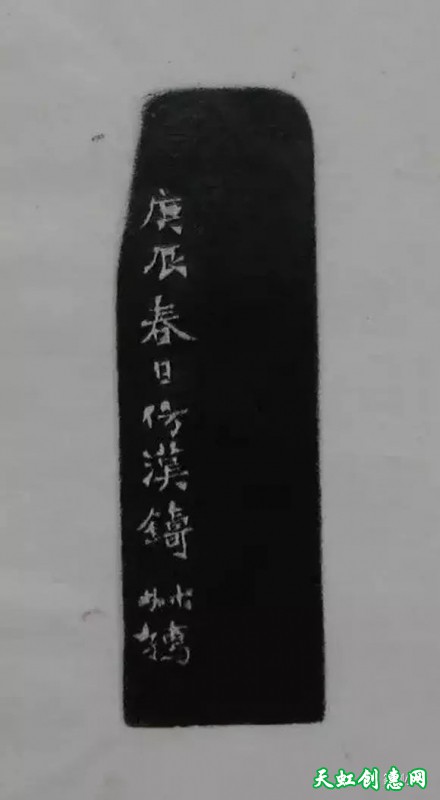 庚辰春日仿漢鑄 叔孺
天虹创意网